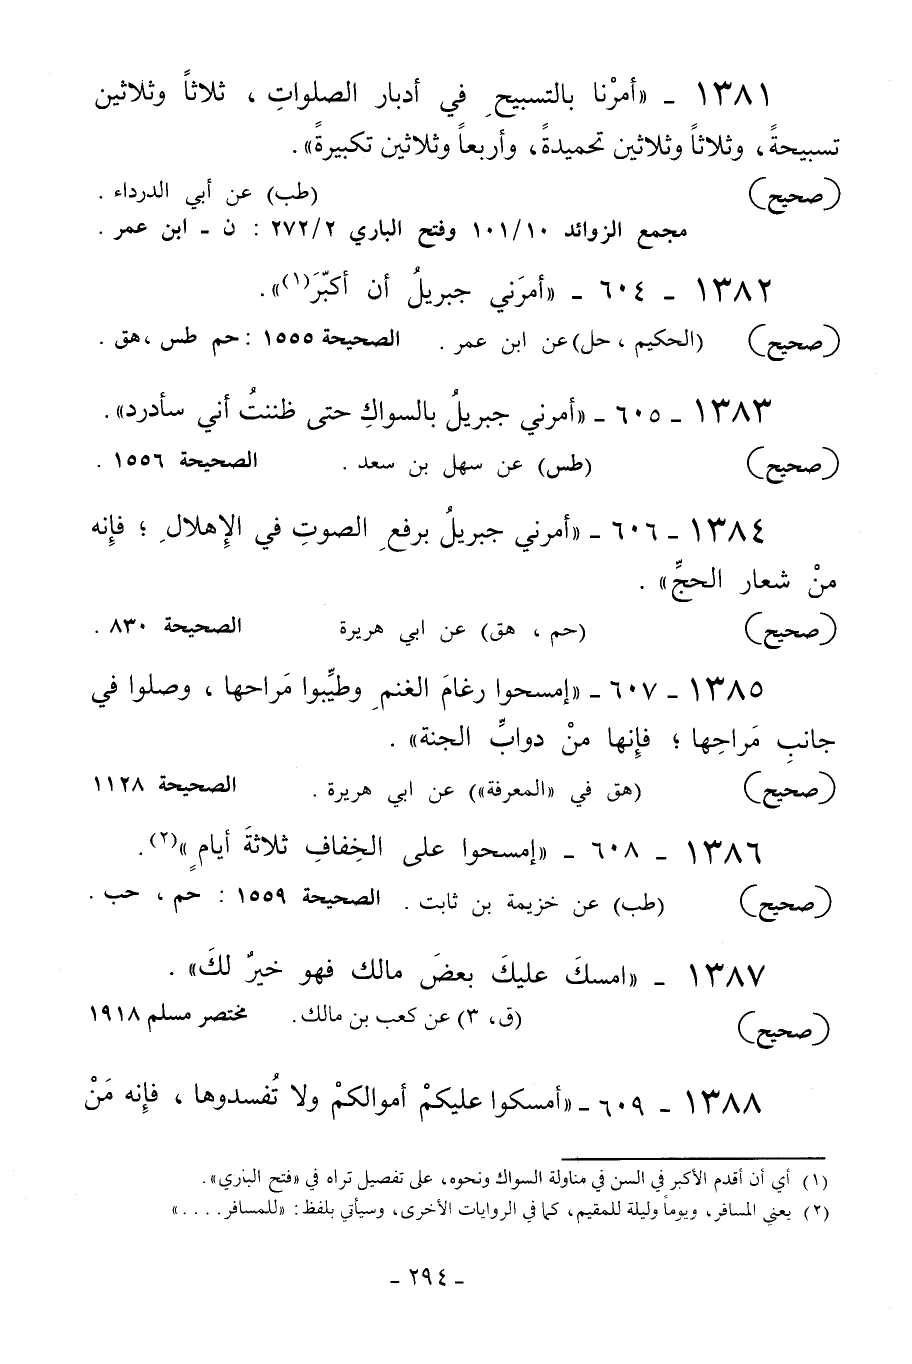 ١٣٨١ ـ «أمرْنا بالتسبيحِ في أدبار الصلواتِ ، ثلاثاً وثلاثين
تسبيحةً، وثلاثاً وثلاثين تحميدةً، وأربعاً وثلاثين تكبيرةً».
(صحيح) (طب) عن أبي الدرداء .
مجمع الزوائد ١٠١/١٠ وفتح الباري ٢٧٢/٢ : ن ـ ابن عمر .
١٣٨٢ ـ ٦٠٤ ـ «أمرَني جبريلُ أن أكبّرَ(١)».
(صحيح) (الحكيم ، حل) عن ابن عمر . الصحيحة ١٥٥٥ : حم طس ،هق .
١٣٨٣ ـ ٦٠٥ ـ «أمرني جبريلُ بالسواكِ حتى ظننتُ أني سأدرد».
(صحيح) (طس) عن سهل بن سعد . الصحيحة ١٥٥٦ .
١٣٨٤ ـ ٦٠٦ ـ «أمرني جبريلُ برفعِ الصوتِ في الإهلالِ ؛ فإنه
منْ شعار الحجِّ» .
(صحيح) (حم ، هق) عن ابي هريرة الصحيحة ٨٣٠ .
١٣٨٥ ـ ٦٠٧ ـ «إمسحوا رغامَ الغنمِ وطيِّبوا مَراحها ، وصلوا في
جانبِ مَراحِها ؛ فإنها منْ دوابِّ الجنة» .
(صحيح) (هق في «المعرفة») عن ابي هريرة . الصحيحة ١١٢٨
١٣٨٦ ـ ٦٠٨ ـ «إمسحوا على الخِفافِ ثلاثةَ أيامٍ»(٢).
(صحيح) (طب) عن خزيمة بن ثابت . الصحيحة ١٥٥٩ : حم ، حب .
١٣٨٧ ـ «امسكَ عليكَ بعضَ مالك فهو خيرٌ لكَ» .
(صحيح) (ق، ٣) عن كعب بن مالك. مختصر مسلم ١٩١٨
١٣٨٨ ـ ٦٠٩ ـ «أمسكوا عليكمْ أموالكمْ ولا تُفسدوها ، فإنه مَنْ
(١) أي أن أقدم الأكبر في السن في مناولة السواك ونحوه، على تفصيل تراه في «فتح الباري».
(٢) يعني المسافر، ويوماً وليلة للمقيم، كما في الروايات الأخرى، وسيأتي بلفظ: «للمسافر. . . .»
ـ ٢٩٤ ـ